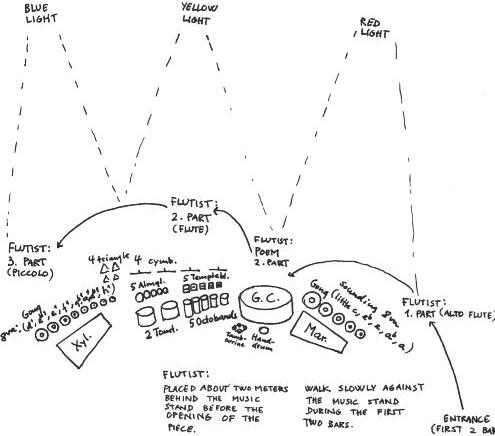 BLUE
LIGHT
YELLOW
LIGHT
RED
LIGHT
FLUTIST:
2. PART
(FLUTE)
FLUTIST:
3. PART
(PICCOLO)
FLUTIST:
POEM
2. PART
FLUTIST:
1. PART (ALTO FLUTE)
4 triangle
4 cymb.
5 Almgl.
5 Templebl.
Gong
8va:
Xyl.
2 Tomt.
5 Octobands
G.C.
Tamb-
ourine
Hand-
drum
Mar.
Sounding 8va
Gong (little c, eb, e, ab, a)
ENTRANCE
(FIRST 2 BAR
FLUTIST:
PLACED ABOUT TWO METERS
BEHIND THE MUSIC
STAND BEFORE THE
OPENING OF THE
PIECE.
WALK SLOWLY AGAINST
THE MUSIC STAND
DURING THE FIRST
TWO BARS.